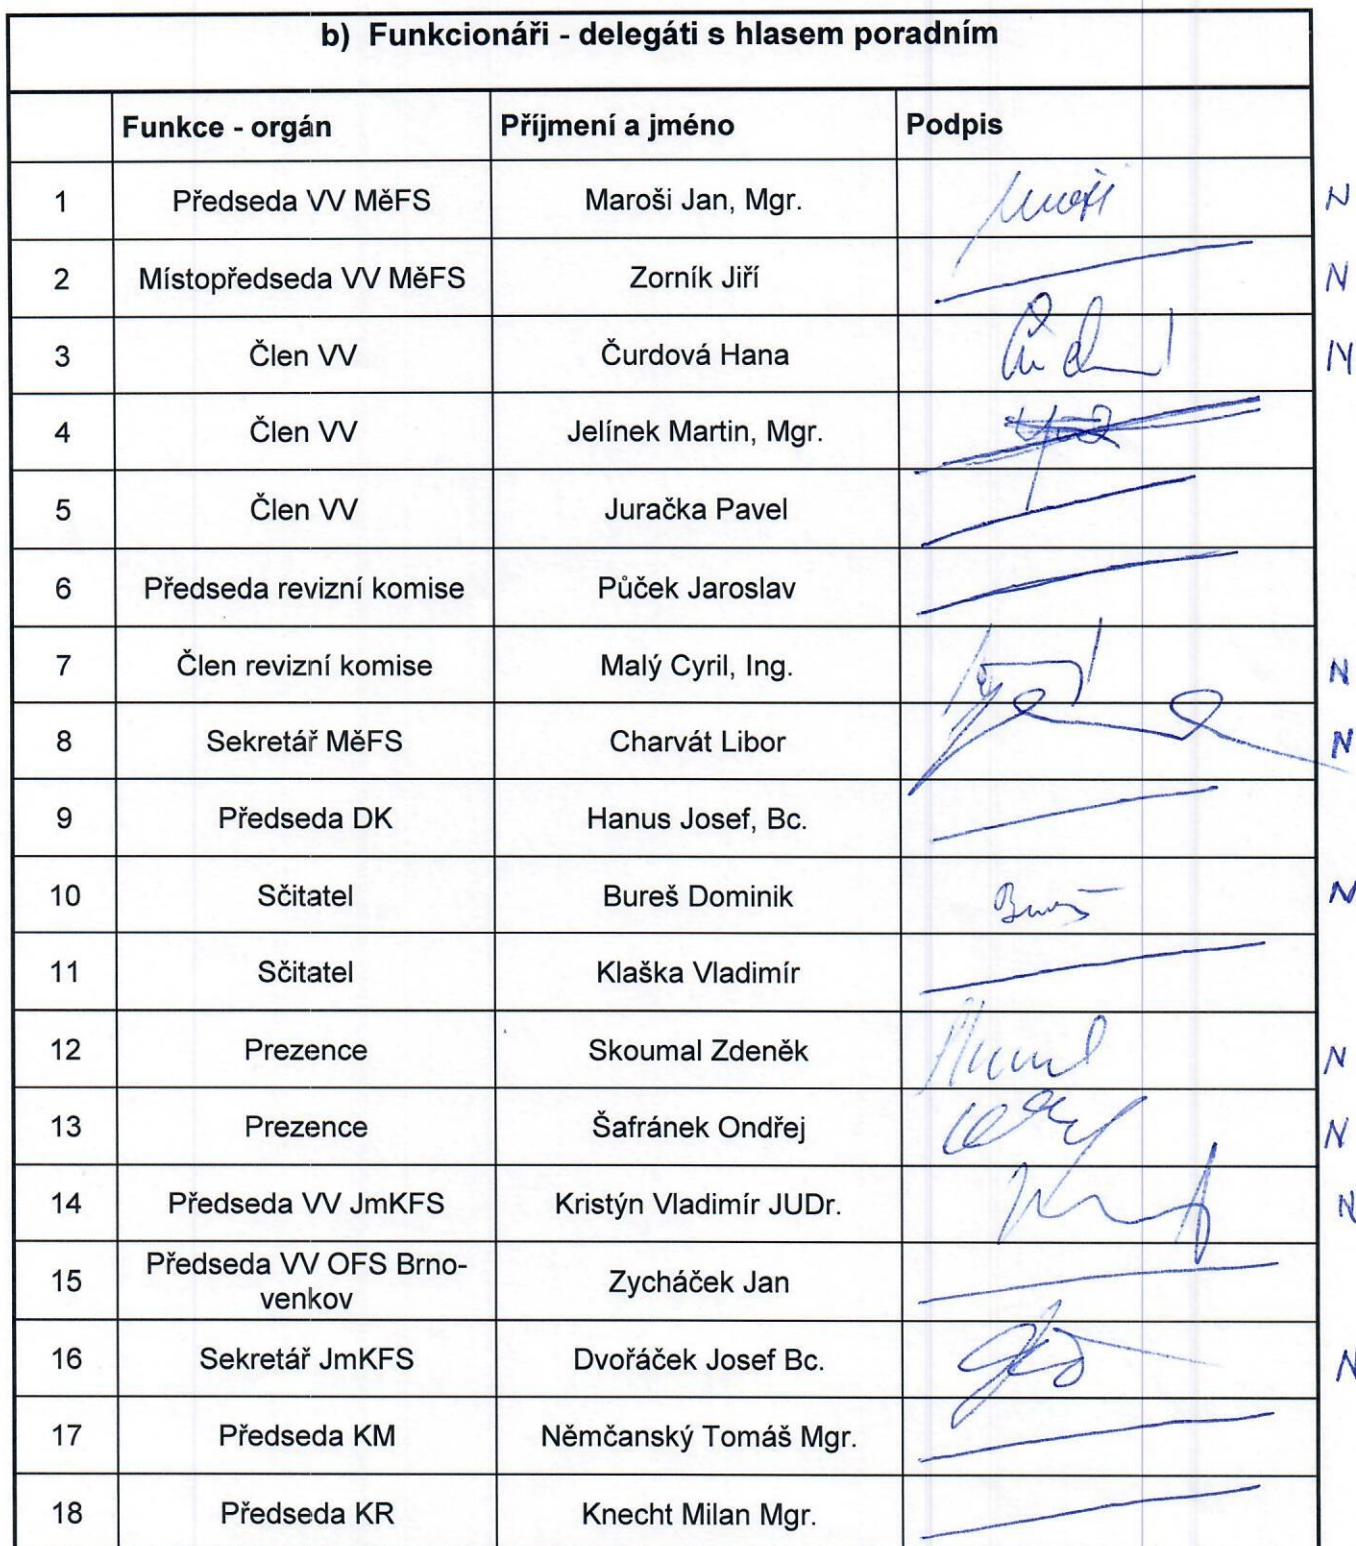 b) Funkcionáři - delegáti s hlasem poradním
Funkce - orgán Příjmení a jméno Podpis
1 Předseda VV MěFS Maroši Jan, Mgr. N
2 Místopředseda VV MěFS Zorník Jiří N
3 Člen VV Čurdová Hana N
4 Člen VV Jelínek Martin, Mgr.
5 Člen VV Juračka Pavel
6 Předseda revizní komise Půček Jaroslav
7 Člen revizní komise Malý Cyril, Ing. N
8 Sekretář MěFS Charvát Libor N
9 Předseda DK Hanus Josef, Bc.
10 Sčitatel Bureš Dominik Bureš N
11 Sčitatel Klaška Vladimír
12 Prezence Skoumal Zdeněk N
13 Prezence Šafránek Ondřej N
14 Předseda VV JmKFS Kristýn Vladimír JUDr. N
15 Předseda VV OFS Brno-
venkov Zycháček Jan
16 Sekretář JmKFS Dvořáček Josef Bc. N
17 Předseda KM Němčanský Tomáš Mgr.
18 Předseda KR Knecht Milan Mgr.